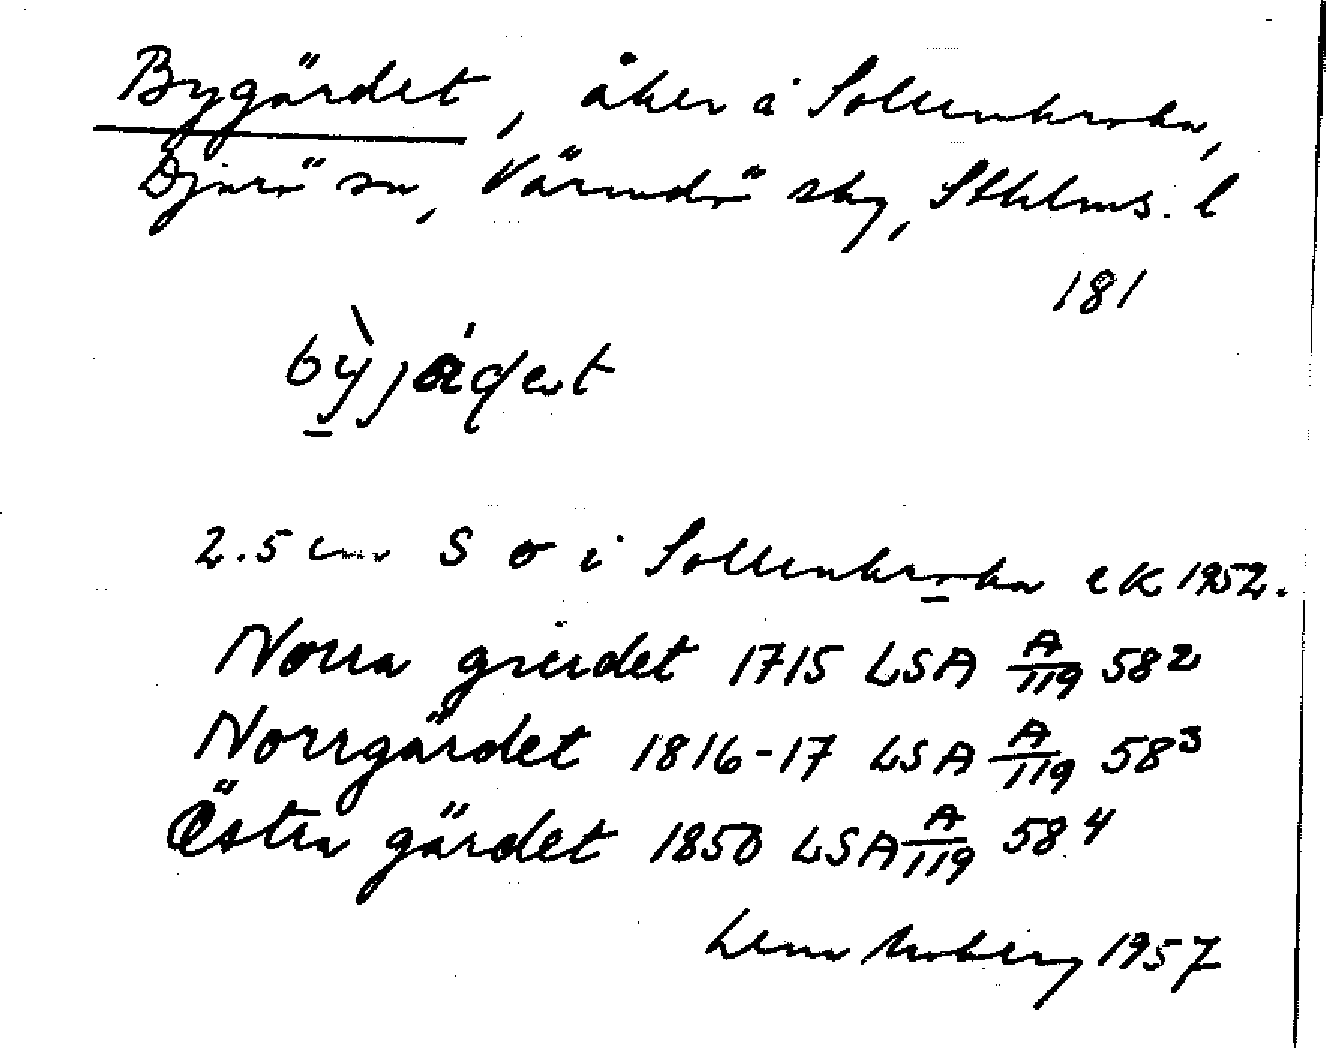 Bygärdet, åker i Sollenkroka,
Djurö sn, Värmdö skg, Sthlms. l
181
bỳjáɖet
2.5 cm S o i Sollenkroka eK 1952.
Norra gierdet 1715 LSA A/119 58²
Norrgärdet 1816-17 LSA A/119 58³
Östra gärdet 1850 LSA A/119 58⁴
Moberg 1957